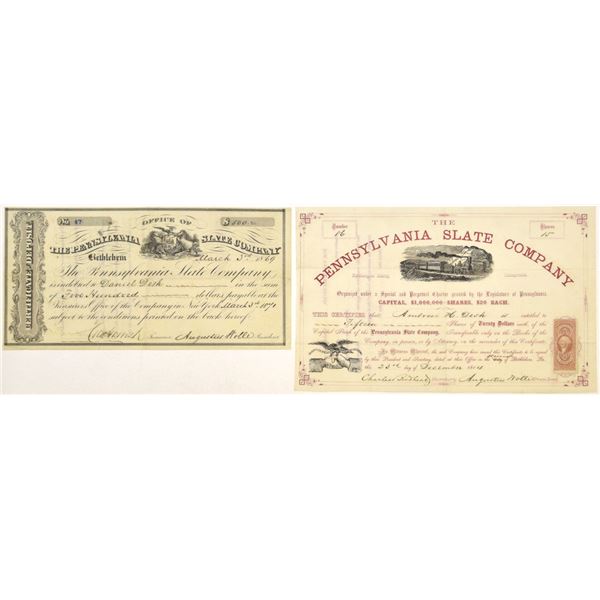 No. 47
OFFICE OF
$500.
CERTIFICATE OF DEPOSIT
THE PENNSYLVANIA SLATE COMPANY
Bethlehem March 3rd 1869
The Pennsylvania Slate Company,
is indebted to Daniel Desh in the sum
of Five Hundred dollars payable at the
Treasurers Office of the Company in New York March 3rd 1871
subject to the conditions printed on the back hereof
Augustus Wolle President
THE
Number
16
Shares
15
PENNSYLVANIA SLATE COMPANY
Organized under a Special and Perpetual Charter granted by the Legislature of Pennsylvania
CAPITAL, $1,000,000- SHARES, $20 EACH.
THIS CERTIFIES that Andrew H. Desh is entitled to
Fifteen Shares of Twenty Dollars each, of the
Capital Stock of the Pennsylvania Slate Company. Transferable only on the Books of the
Company, in person, or by Attorney, on the surrender of this Certificate.
In Witness Whereof, the said Company have caused this Certificate to be signed
by their President and Secretary, dated at this Office in the City of Bethlehem
the 22nd day of December 1864
Augustus Wolle